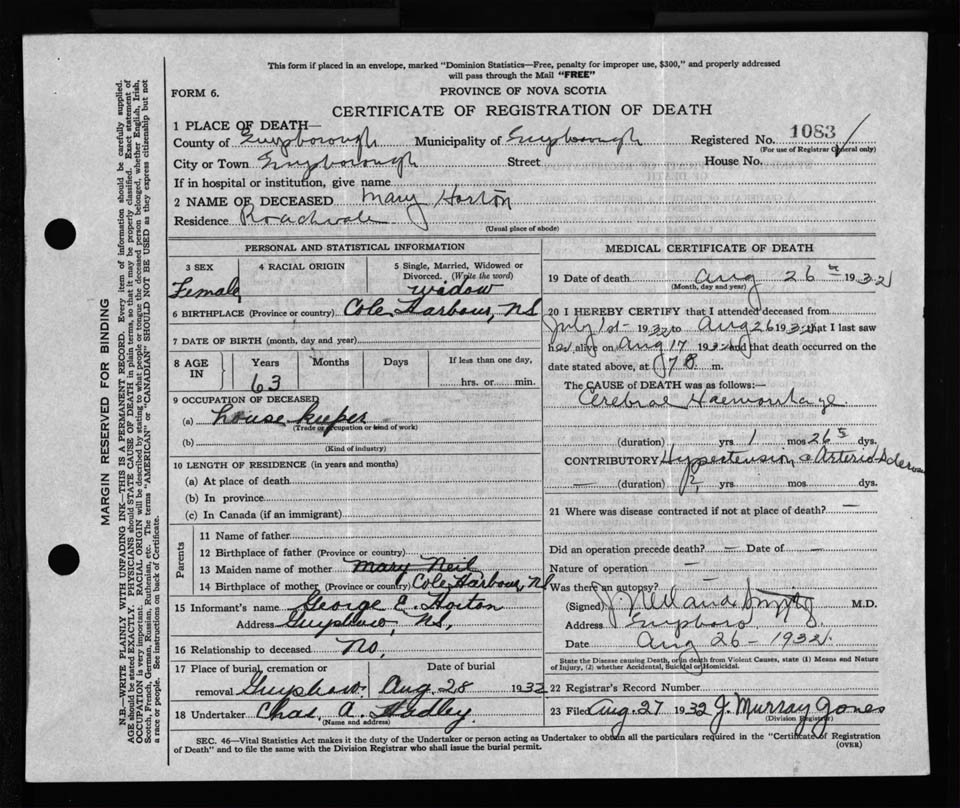 This form if placed in an envelope, marked "Dominion Statistics—Free, penalty for improper use, $300," and properly addressed
will pass through the Mail "FREE"
FORM 6.
PROVINCE OF NOVA SCOTIA
CERTIFICATE OF REGISTRATION OF DEATH
1 PLACE OF DEATH—
County of Guysborough Municipality of Guysborough Registered No. 1083
(For use of Registrar General only)
City or Town Guysborough Street House No.
If in hospital or institution, give name
2 NAME OF DECEASED Mary Horton
Residence Roachvale
(Usual place of abode)
PERSONAL AND STATISTICAL INFORMATION
3 SEX Female
4 RACIAL ORIGIN
5 Single, Married, Widowed or
Divorced. (Write the word)
widow
6 BIRTHPLACE (Province or country) Cole Harbour, NS
7 DATE OF BIRTH (month, day and year)
8 AGE IN Years Months Days If less than one day,
63 hrs. or min.
9 OCCUPATION OF DECEASED
(a) house keeper
(Trade or occupation or kind of work)
(b)
(Kind of industry)
10 LENGTH OF RESIDENCE (in years and months)
(a) At place of death
(b) In province
(c) In Canada (if an immigrant)
Parents
11 Name of father
12 Birthplace of father (Province or country)
13 Maiden name of mother Mary Neil
14 Birthplace of mother (Province or country) Cole Harbour, NS
15 Informant's name George E. Horton
Address Guysboro, NS,
16 Relationship to deceased No,
17 Place of burial, cremation or Date of burial
removal Guysboro. Aug. 28 1932
18 Undertaker Chas. A. Hadley
(Name and address)
MEDICAL CERTIFICATE OF DEATH
19 Date of death Aug 26th 1932
(Month, day and year)
20 I HEREBY CERTIFY that I attended deceased from
July 1st 1932 to Aug 26 1932 that I last saw
her alive on Aug 17 1932 and that death occurred on the
date stated above, at m.
The CAUSE of DEATH was as follows:—
Cerebral Haemorrhage
(duration) yrs 1 mos 26 dys.
CONTRIBUTORY Hypertension Arterio
(duration) yrs. mos. dys.
21 Where was disease contracted if not at place of death? —
Did an operation precede death? — Date of —
Nature of operation —
Was there an autopsy?
(Signed) M.D.
Address Guysboro
Date Aug 26 - 1932
State the Disease causing Death, or in death from Violent Causes, state (1) Means and Nature
of Injury, (2) whether Accidental, Suicidal or Homicidal.
22 Registrar's Record Number
23 Filed Aug. 27 1932 J. Murray Jones
(Division Registrar)
SEC. 46—Vital Statistics Act makes it the duty of the Undertaker or person acting as Undertaker to obtain all the particulars required in the "Certificate of Registration
of Death" and to file the same with the Division Registrar who shall issue the burial permit.
(OVER)
MARGIN RESERVED FOR BINDING
N.B.—WRITE PLAINLY WITH UNFADING INK—THIS IS A PERMANENT RECORD. Every item of information should be carefully supplied.
AGE should be stated EXACTLY. PHYSICIANS should STATE CAUSE OF DEATH in plain terms, so that it may be properly classified. Exact statement of
OCCUPATION is very important. RACIAL ORIGIN will be described by stating to what people or tongue the deceased person belonged, whether English, Irish,
Scotch, French, German, Russian, Ruthenian, etc. The terms "AMERICAN" or "CANADIAN" SHOULD NOT BE USED as they express citizenship but not
a race or people. See instructions on back of Certificate.